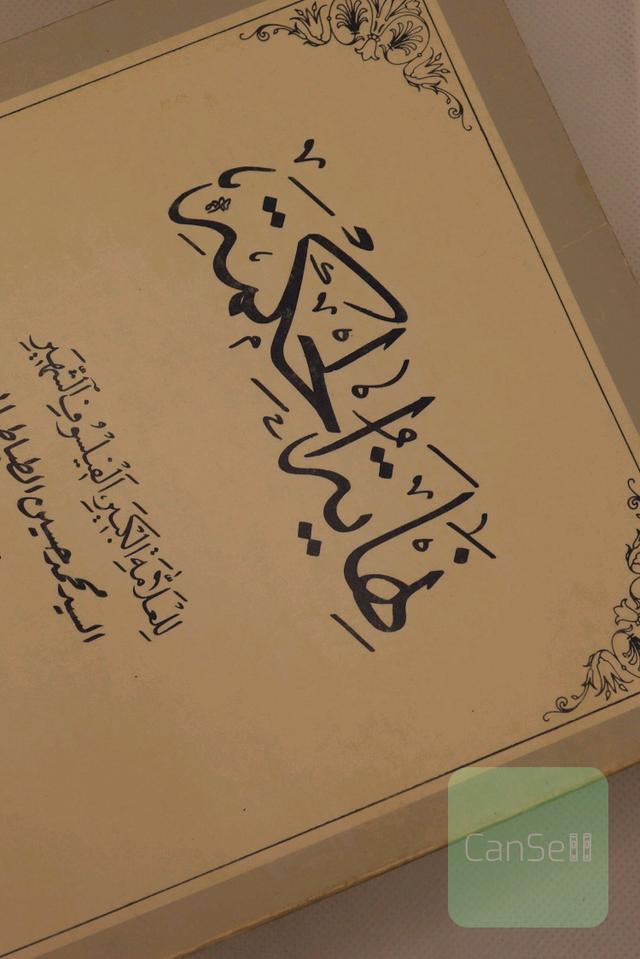 نِهَايَةُ الْحِكْمَةِ
لِلْعَلَّامَةِ الْكَبِيرِ، الْفَيْلَسُوفِ الشَّهِيرِ
السيد محمد حسين الطباطبا
CanSell